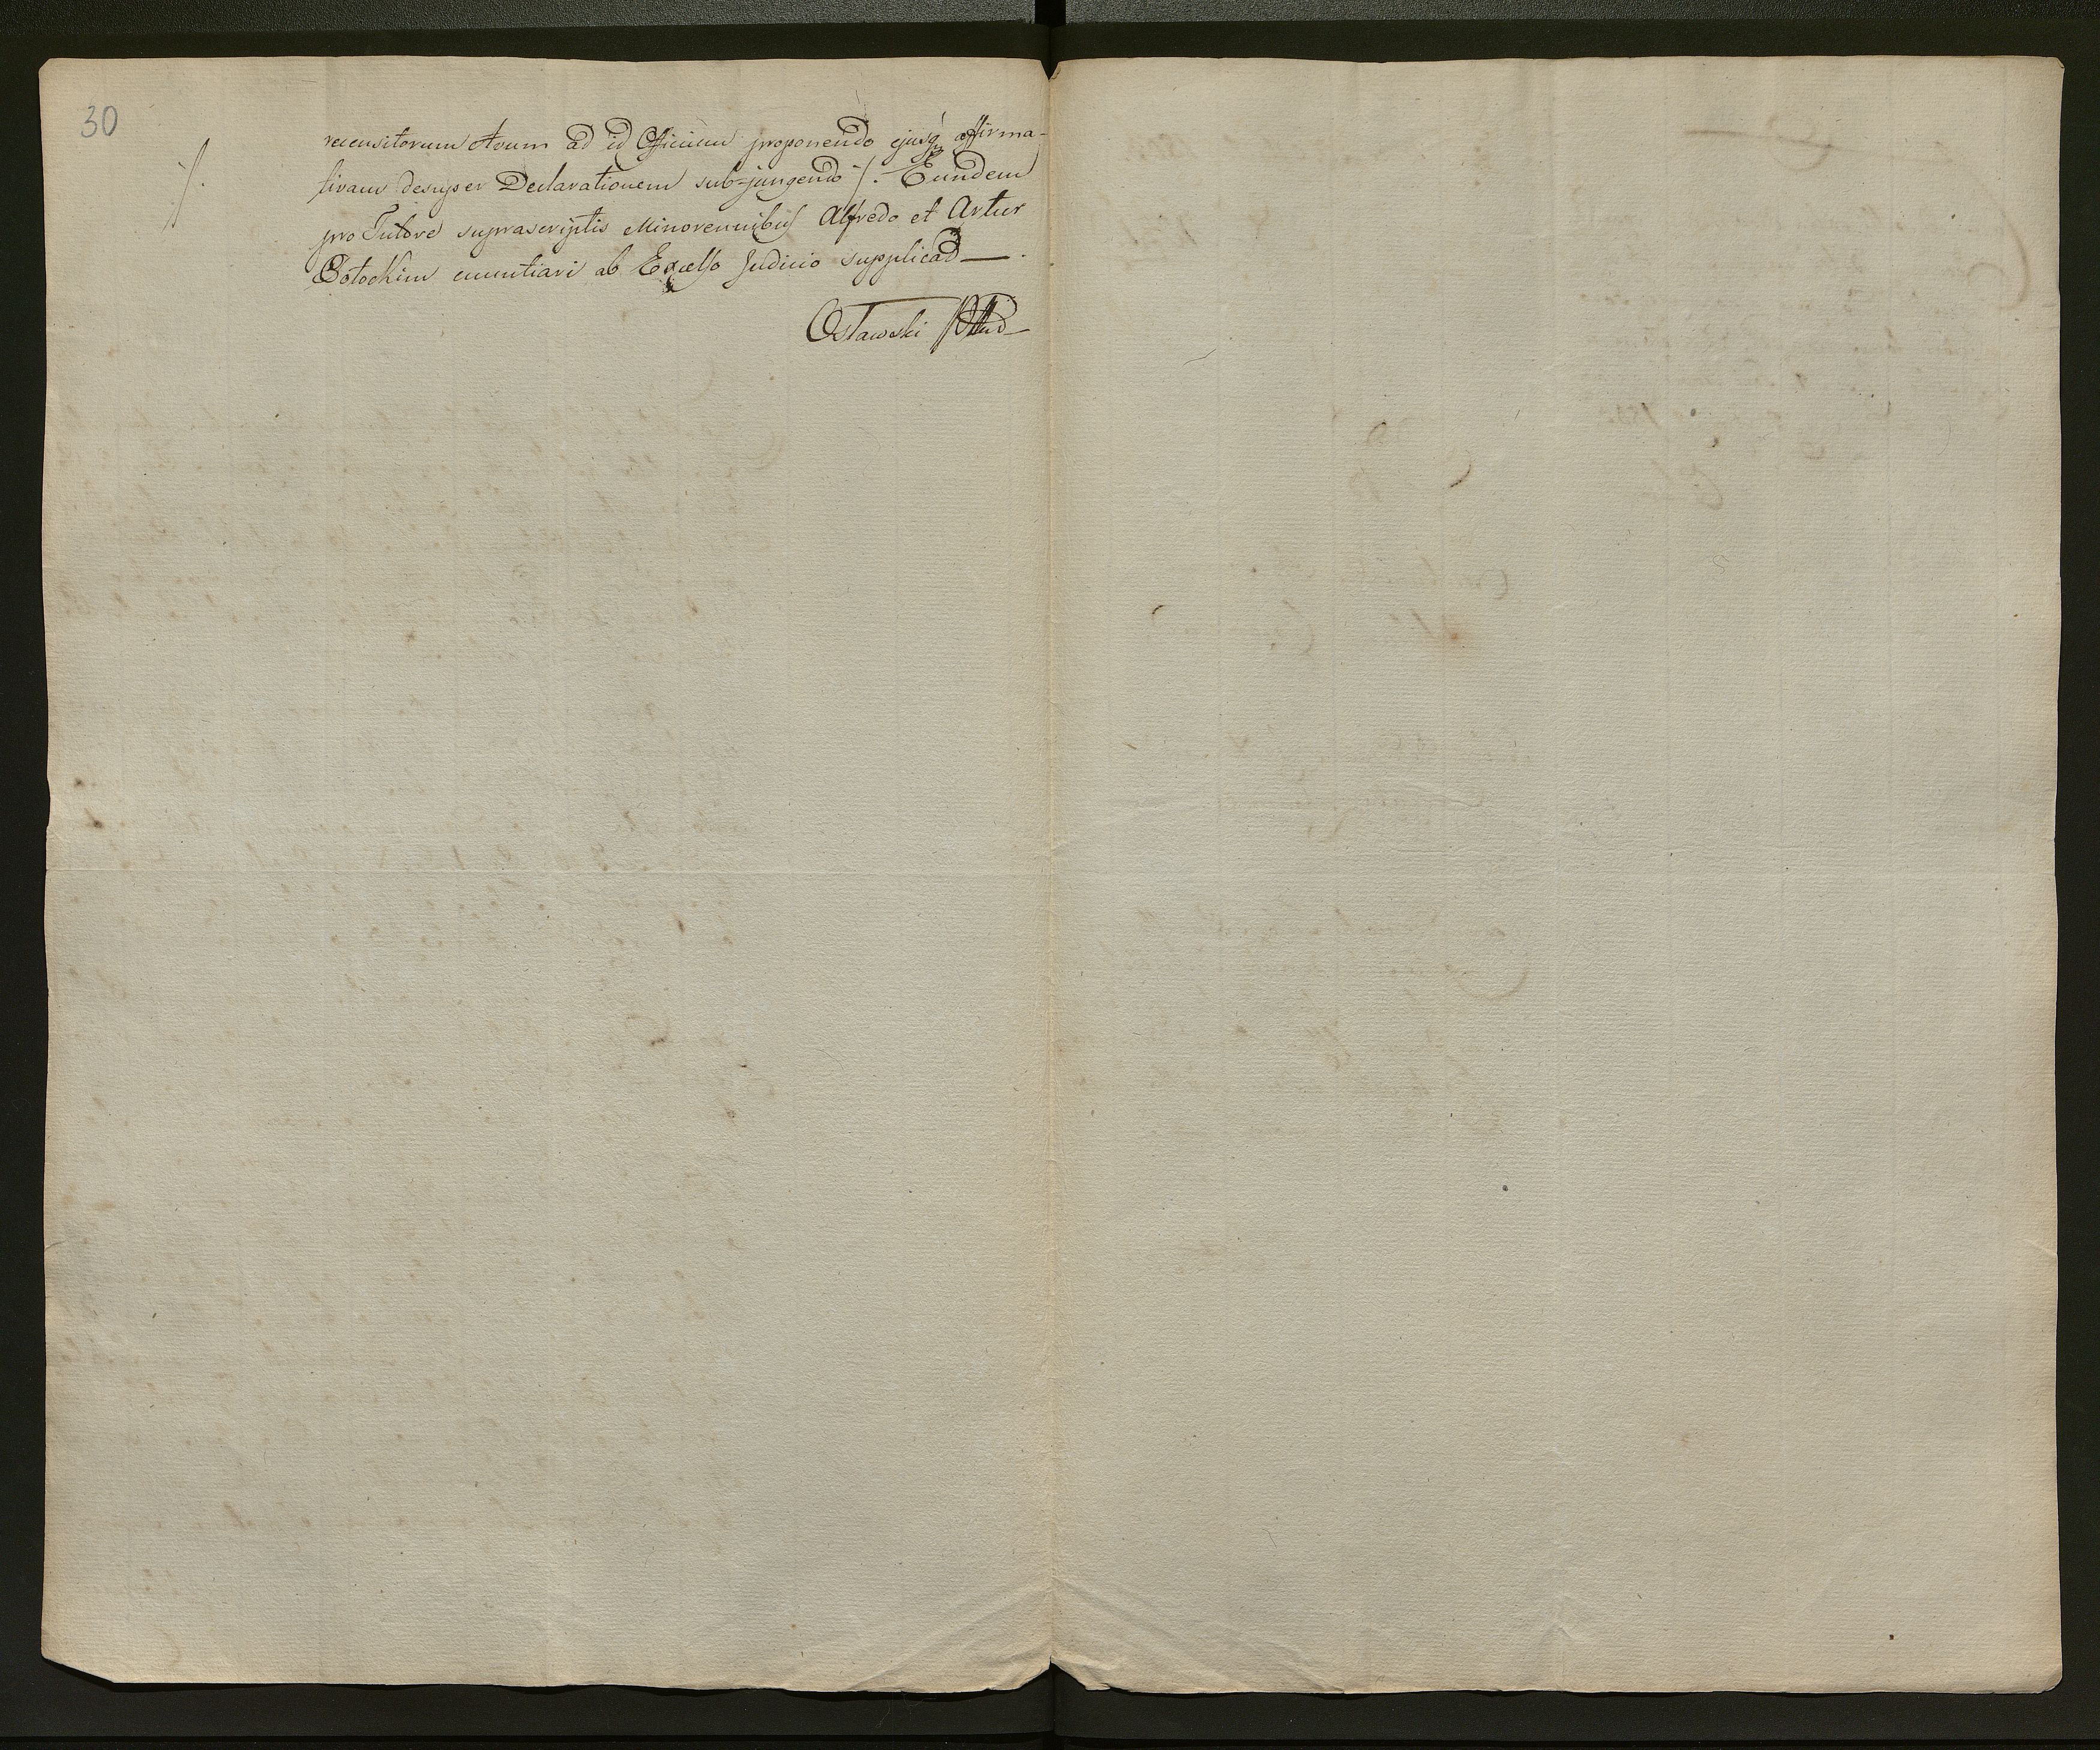 30
recensitorum Avum ad id Officium proponendo ejusq₃ affirma-
tivam desuper Declarationem sub=jungendo ./. Eundem
pro Tutore suprascriptis Minorennibus Alfredo et Artur
Potockim enuntiari ab Excelso Judicio supplicad.
./.
Ostawski